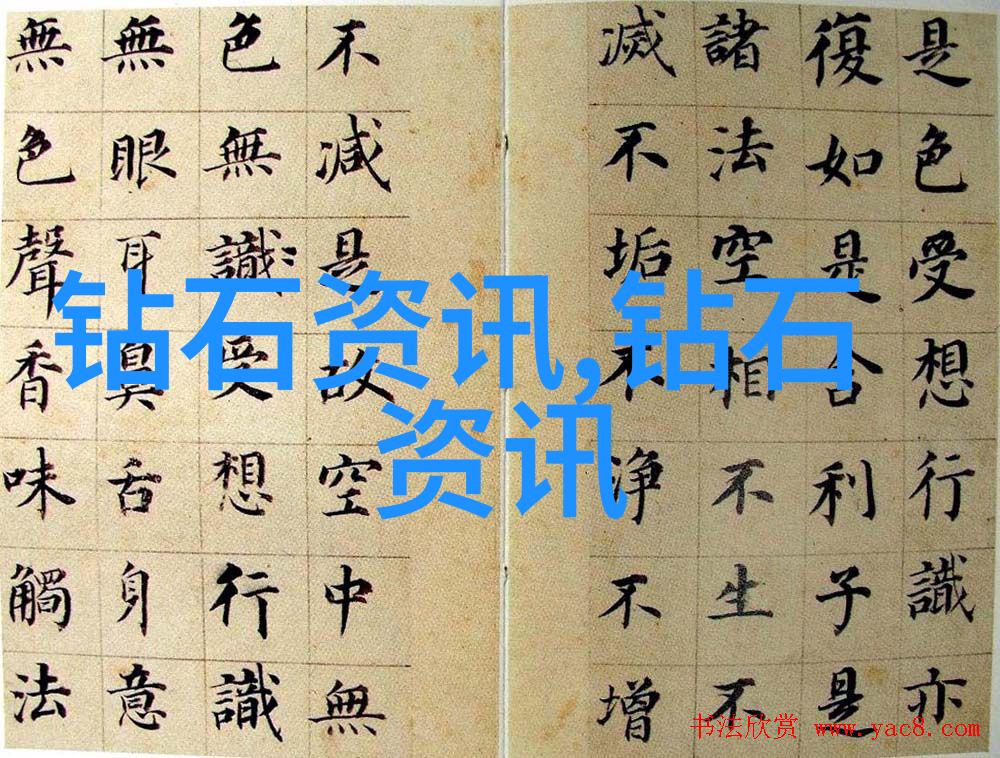 是色受想行識亦
復如是舍利子是
諸法空相不生不
滅不垢不淨不增
不減是故空中無
色無識受想行識
無眼耳鼻舌身意
無色聲香味觸法
钻石资讯,钻石
资讯
书法欣赏 www.yac8.com